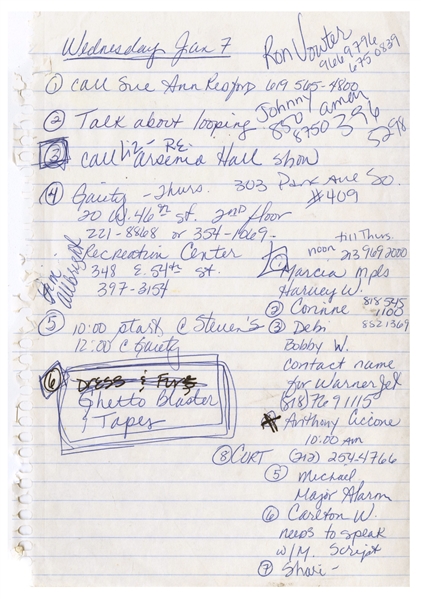 Wednesday Jan 7
Ron Vawter
966 9796
675 0839
① Call Sue Ann 619 565-4800
② Talk about looping
Johnny aman
850 396
8750 5298
③ call Liz - RE: Arsenio Hall show
④ Gaiety - Thurs.
303 Park Ave So.
#409
20 W. 46th st. 2nd floor
221-8868 or 354-1069
Recreation Center
348 E. 54th st.
397-3154
⑤ 10:00 start @ Steven's
12:00 @ Gaiety
⑥ Dress & Furs
Ghetto Blaster
& Tapes
till Thurs.
noon 213 969 2000
① Marcia Mpls
Harvey W.
② Corinne 818 545
1100
③ Debi 852 1369
Bobby W.
contact name
for Warner
(818) 769 1115
Anthony Ciccone
10:00 am
⑧ CURT (212) 254-4766
⑤ Michael
Major Alarm
⑥ Carlton W.
needs to speak
w/M. Script
⑦ Shari -